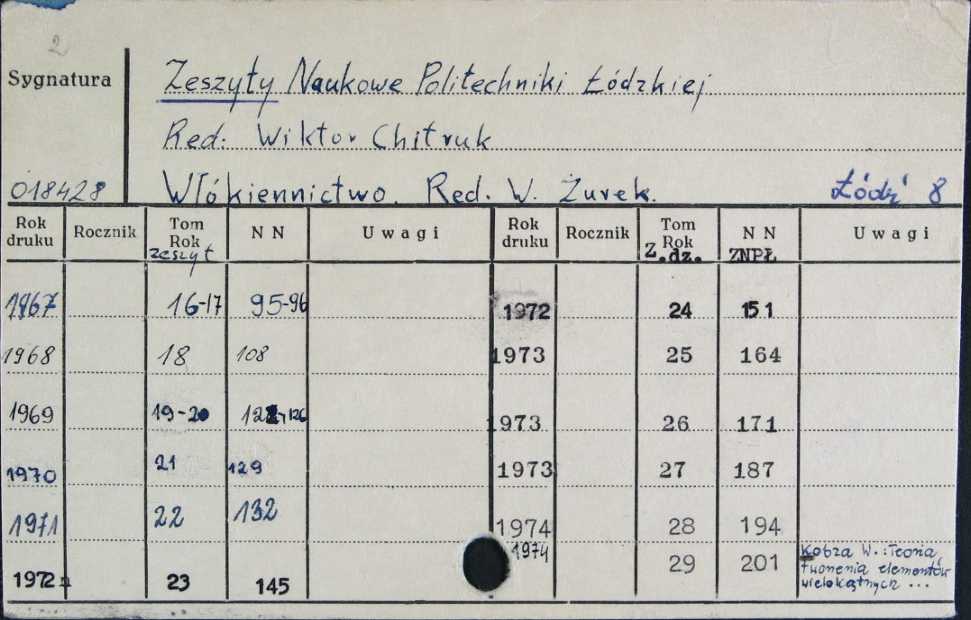 2
Sygnatura
Zeszyty Naukowe Politechniki Łódzkiej
Red: Wiktor Chitruk
018428
Włókiennictwo. Red. W. Żurek. Łódź 8
Rok druku Rocznik Tom Rok zeszyt N N Uwagi Rok druku Rocznik Tom Rok Z.dz. N N ZNPŁ Uwagi
1967 16-17 95-96 1972 24 151
1968 18 108 1973 25 164
1969 19-20 126 1973 26 171
1970 21 129 1973 27 187
1971 22 132 1974 28 194
1972 23 145 1974 29 201 Kobza W.: Teoria
tworzenia elementów
wielokątnych ...